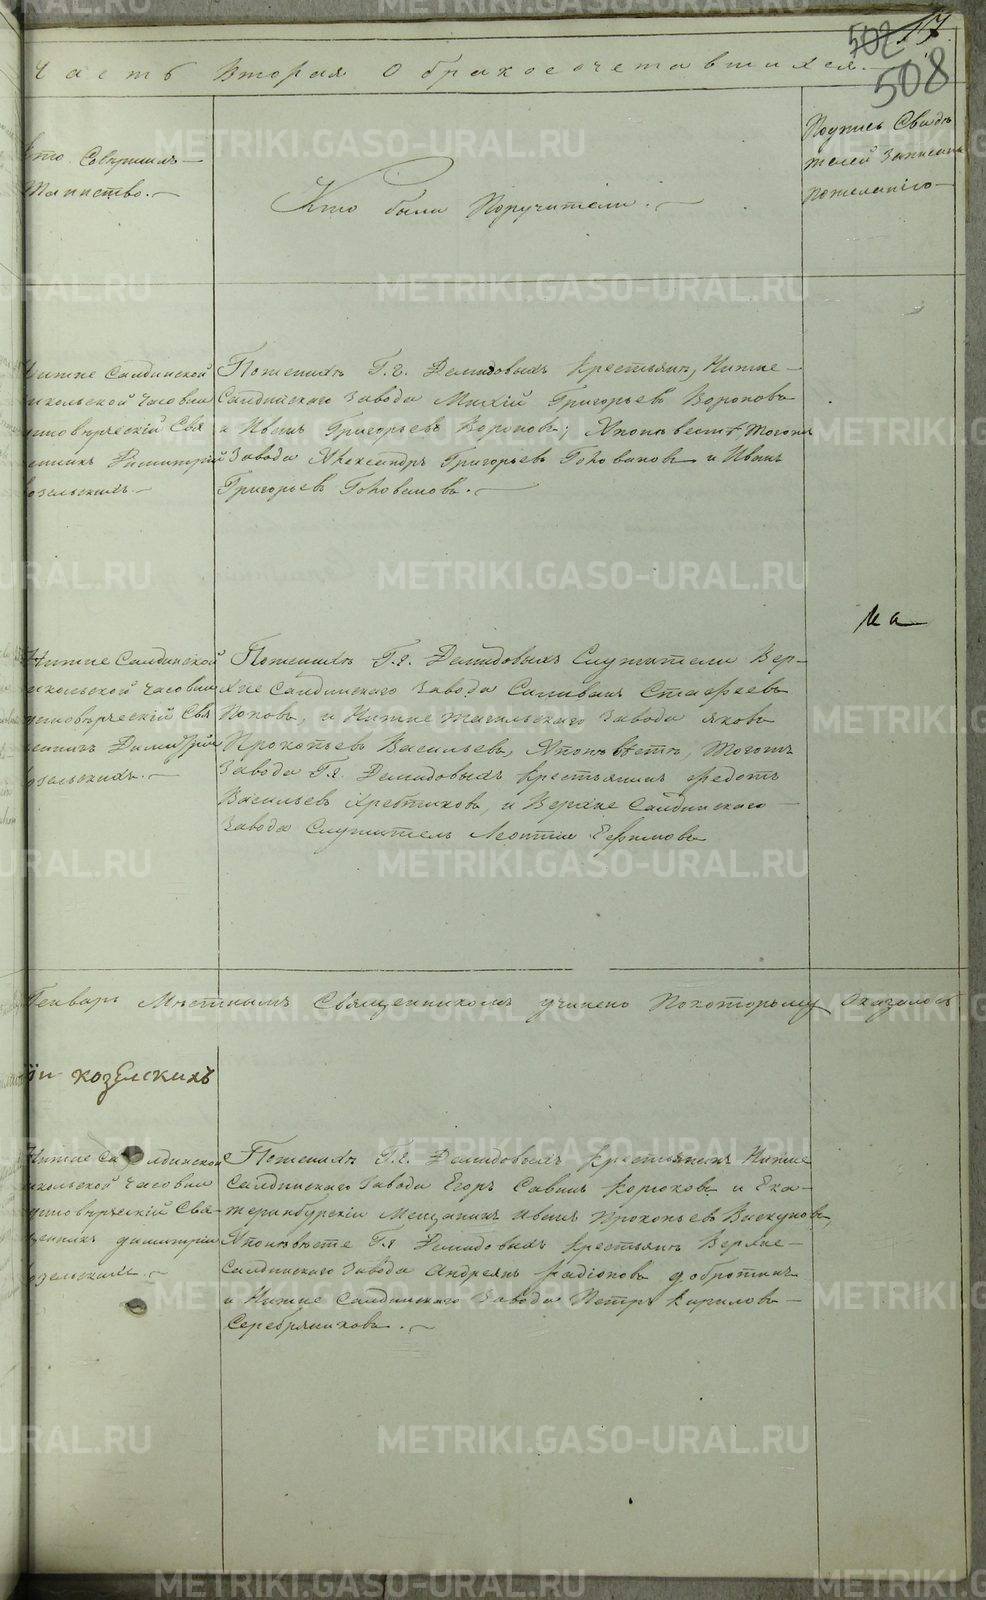 17
502
508
Часть Вторая о бракосочетавшихся.
Кто Совершилъ
Таинство.
Кто были Поручители.
Подпись Свидѣ
телей Записи
по желанію
Нижне Салдинской
Никольской Часовни
Единовѣрческій Свя
щенникъ Димитрій
Козельскихъ.
По женихѣ Г.г. Демидовыхъ Крестьяня, Нижне-
Салдинскаго Завода Григорьевъ Вороновъ
и Иванъ Григорьевъ Вороновъ; А по невестѣ, тогожъ
Завода Александръ Григорьевъ Головановъ и Иванъ
Григорьевъ Головановъ.
Нижне Салдинской
Никольской Часовни
Единовѣрческій Свя
щенникъ Димитрій
Козельскихъ.
По женихѣ Г.г. Демидовыхъ Служители Вер-
хне Салдинскаго Завода Селиванъ Стафеевъ
Поповъ, и Нижне Тагильскаго Завода Яковъ
Прокопьевъ Васильевъ, А по невѣстѣ, Тогожъ
Завода Г.г. Демидовыхъ Крестьянинъ Федотъ
Васильевъ Хребтиковъ, и Верхне Салдинскаго
Завода Служитель Леонтій Ефимовъ
Генварь Мѣстнымъ Священникомъ учинено По которому Оказалось
ій Козелскихъ
Нижне Салдинской
Никольской Часовни
Единовѣрческій Свя-
щенникъ Димитрій
Козельскихъ.
По женихѣ Г.г. Демидовыхъ Крестьянинъ Нижне
Салдинскаго Завода Егоръ Савинъ Корюковъ и Ека-
теринбурскій Мещанинъ Иванъ Прокопьевъ
А по невѣсте Г.г. Демидовыхъ Крестьяня Верхне-
Салдинскаго Завода Андреянъ Радіоновъ Добротинъ
и Нижне Салдинскаго Завода Петръ Кириловъ
Серебряниковъ.
METRIKI.GASO-URAL.RU